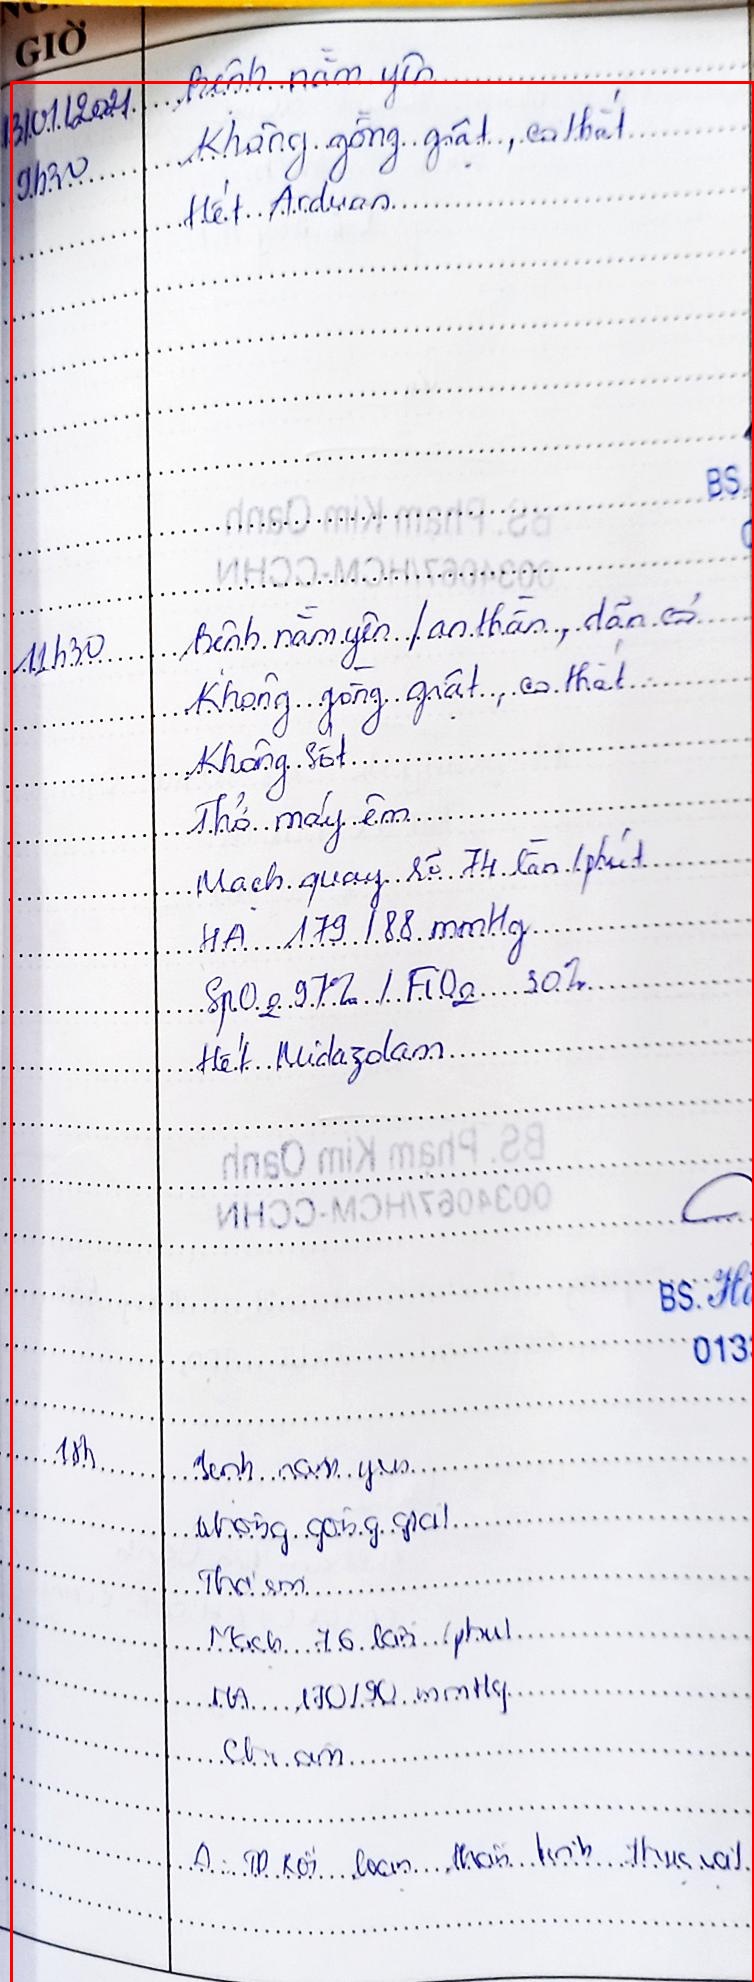 GIỜ
Bệnh nằm yên
13/01/2021
Không gồng giật, co thắt
9h30
Hết Arduan
BS.
BS. Phạm Kim Oanh
0034067/HCM-CCHN
11h30 Bệnh nằm yên / an thần, dãn cơ
Không gồng giật, co thắt
Không sốt
Thở máy êm
Mạch quay rõ 74 lần/phút
HA 179/88 mmHg
SpO2 97% / FiO2 30%
Hết Midazolam
BS. Phạm Kim Oanh
0034067/HCM-CCHN
BS.
013
18h Bệnh nằm yên
Không gồng giật
Thở êm
Mạch 76 lần/phút
HA 170/90 mmHg
Chi ấm
TD Rối loạn thần kinh thực vật